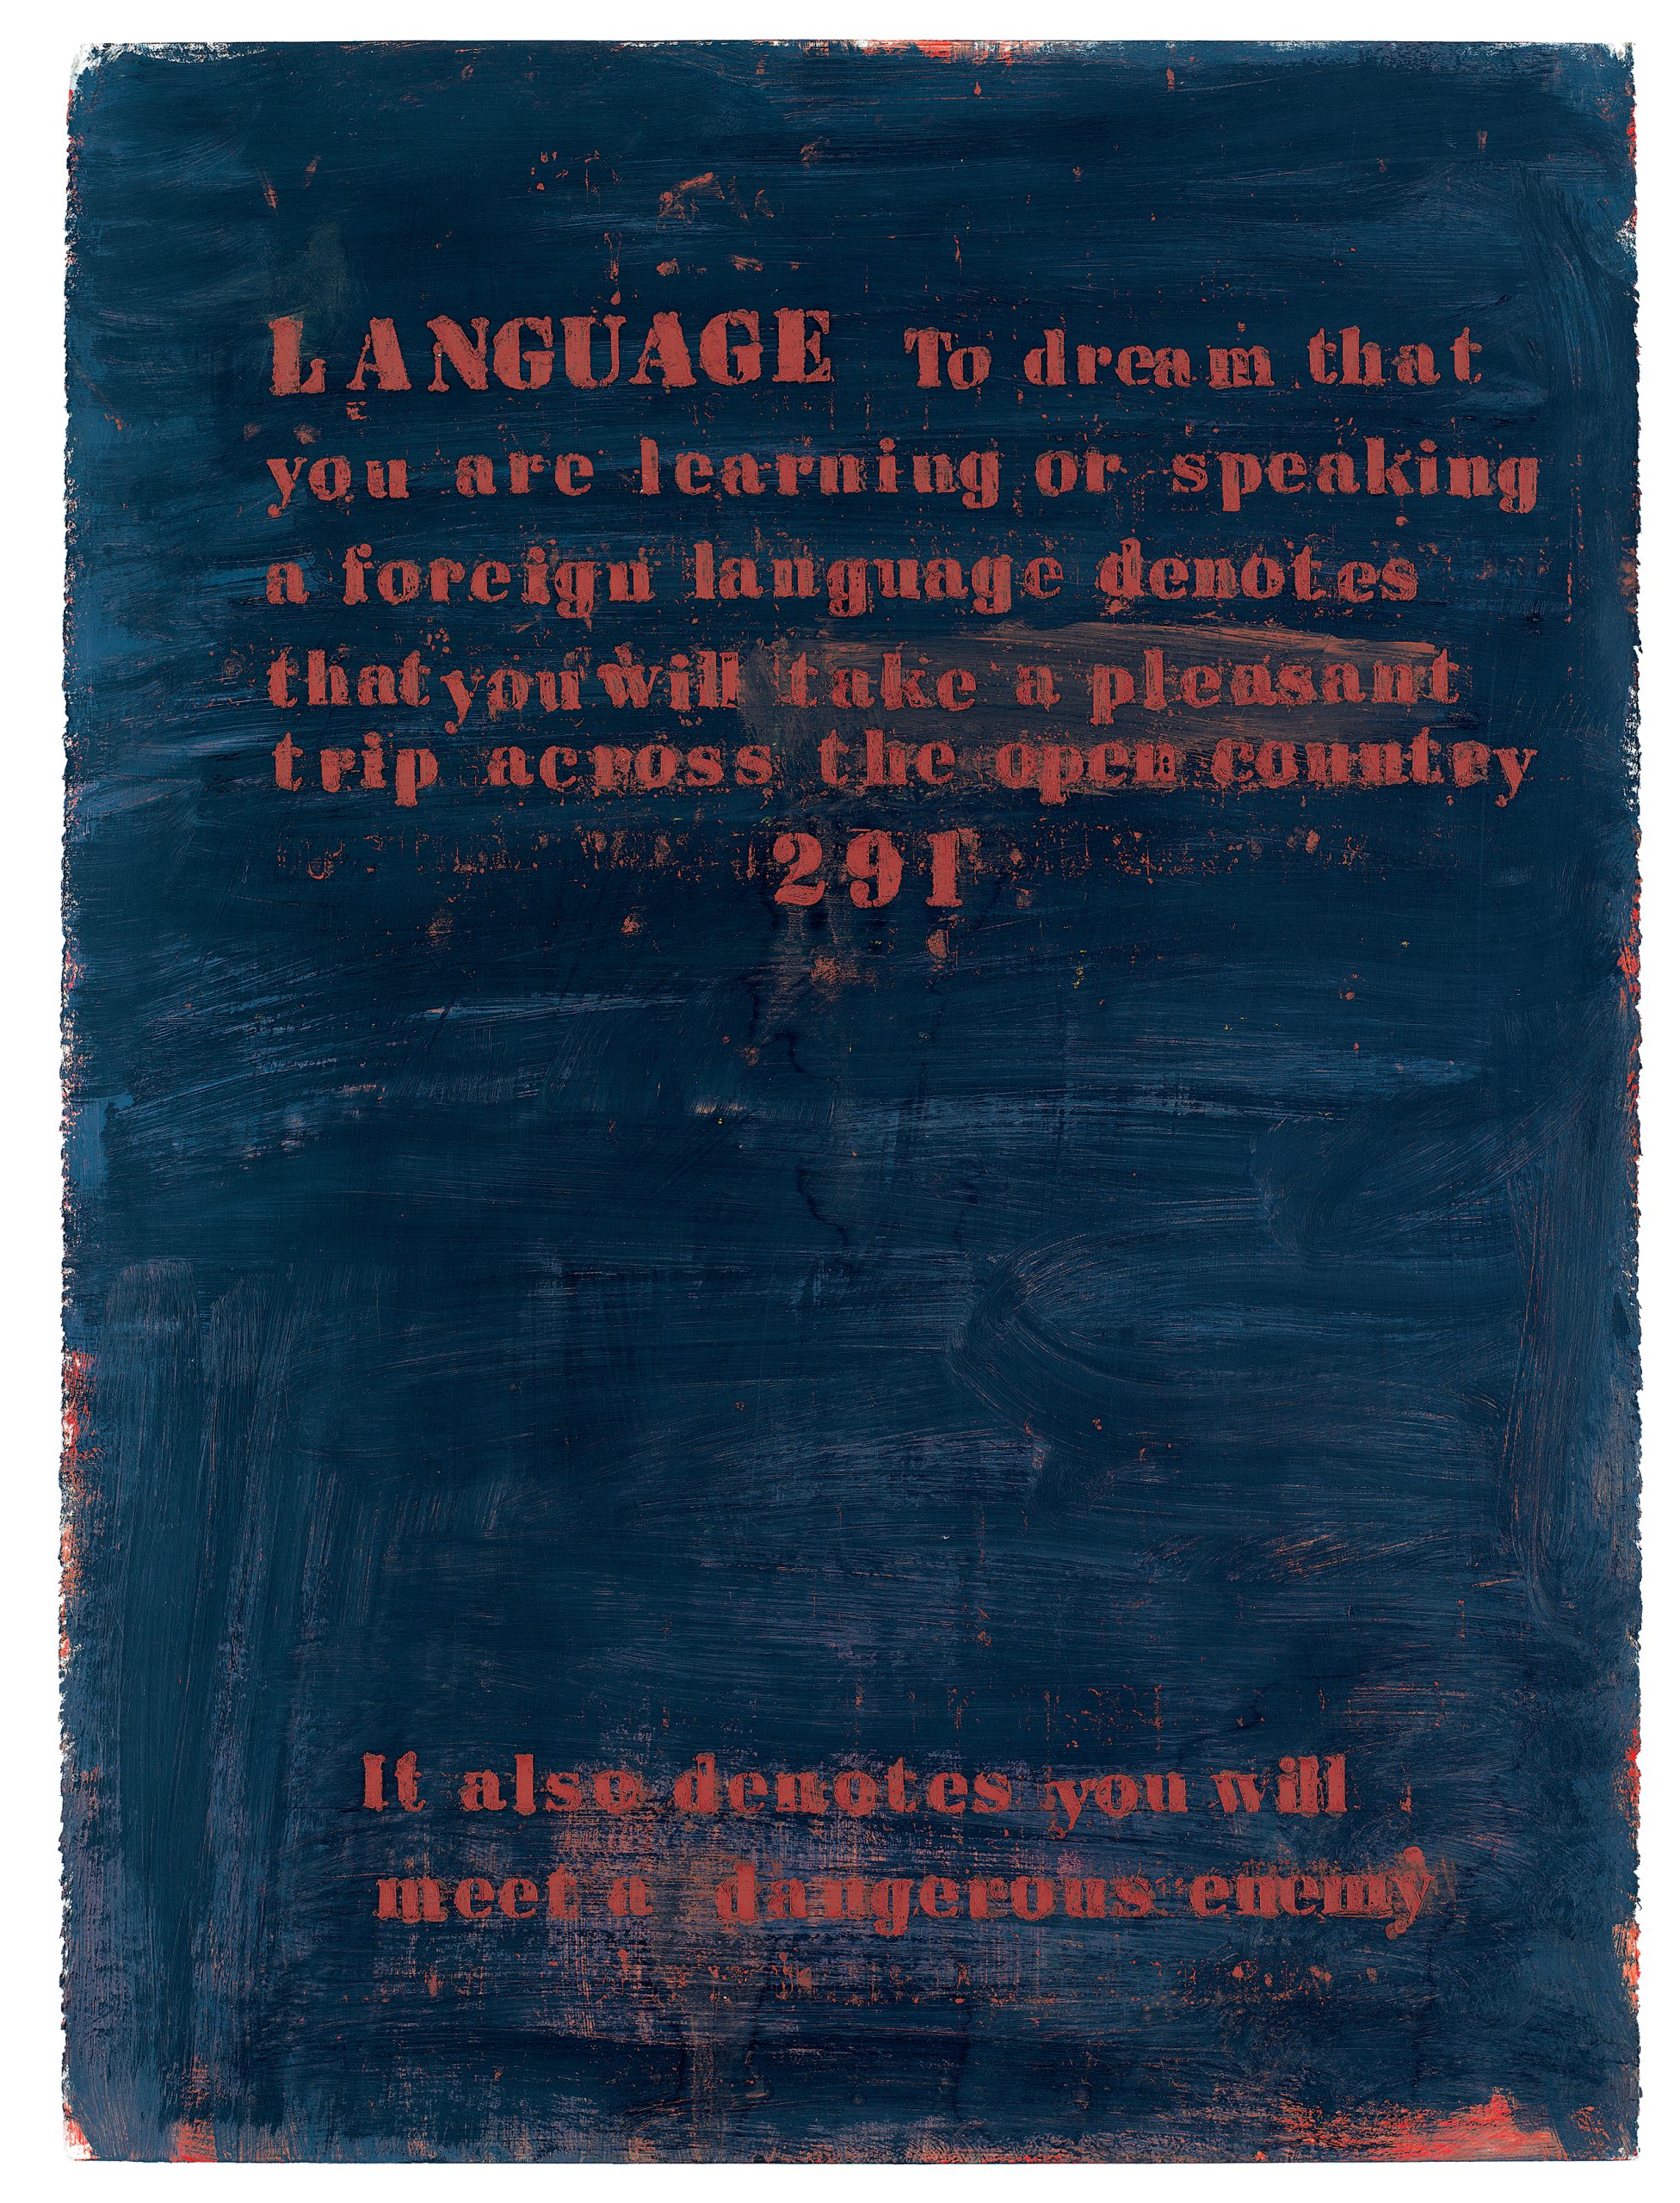 LANGUAGE To dream that
you are learning or speaking
a foreign language denotes
that you will take a pleasant
trip across the open country
291
It also denotes you will
meet a dangerous enemy